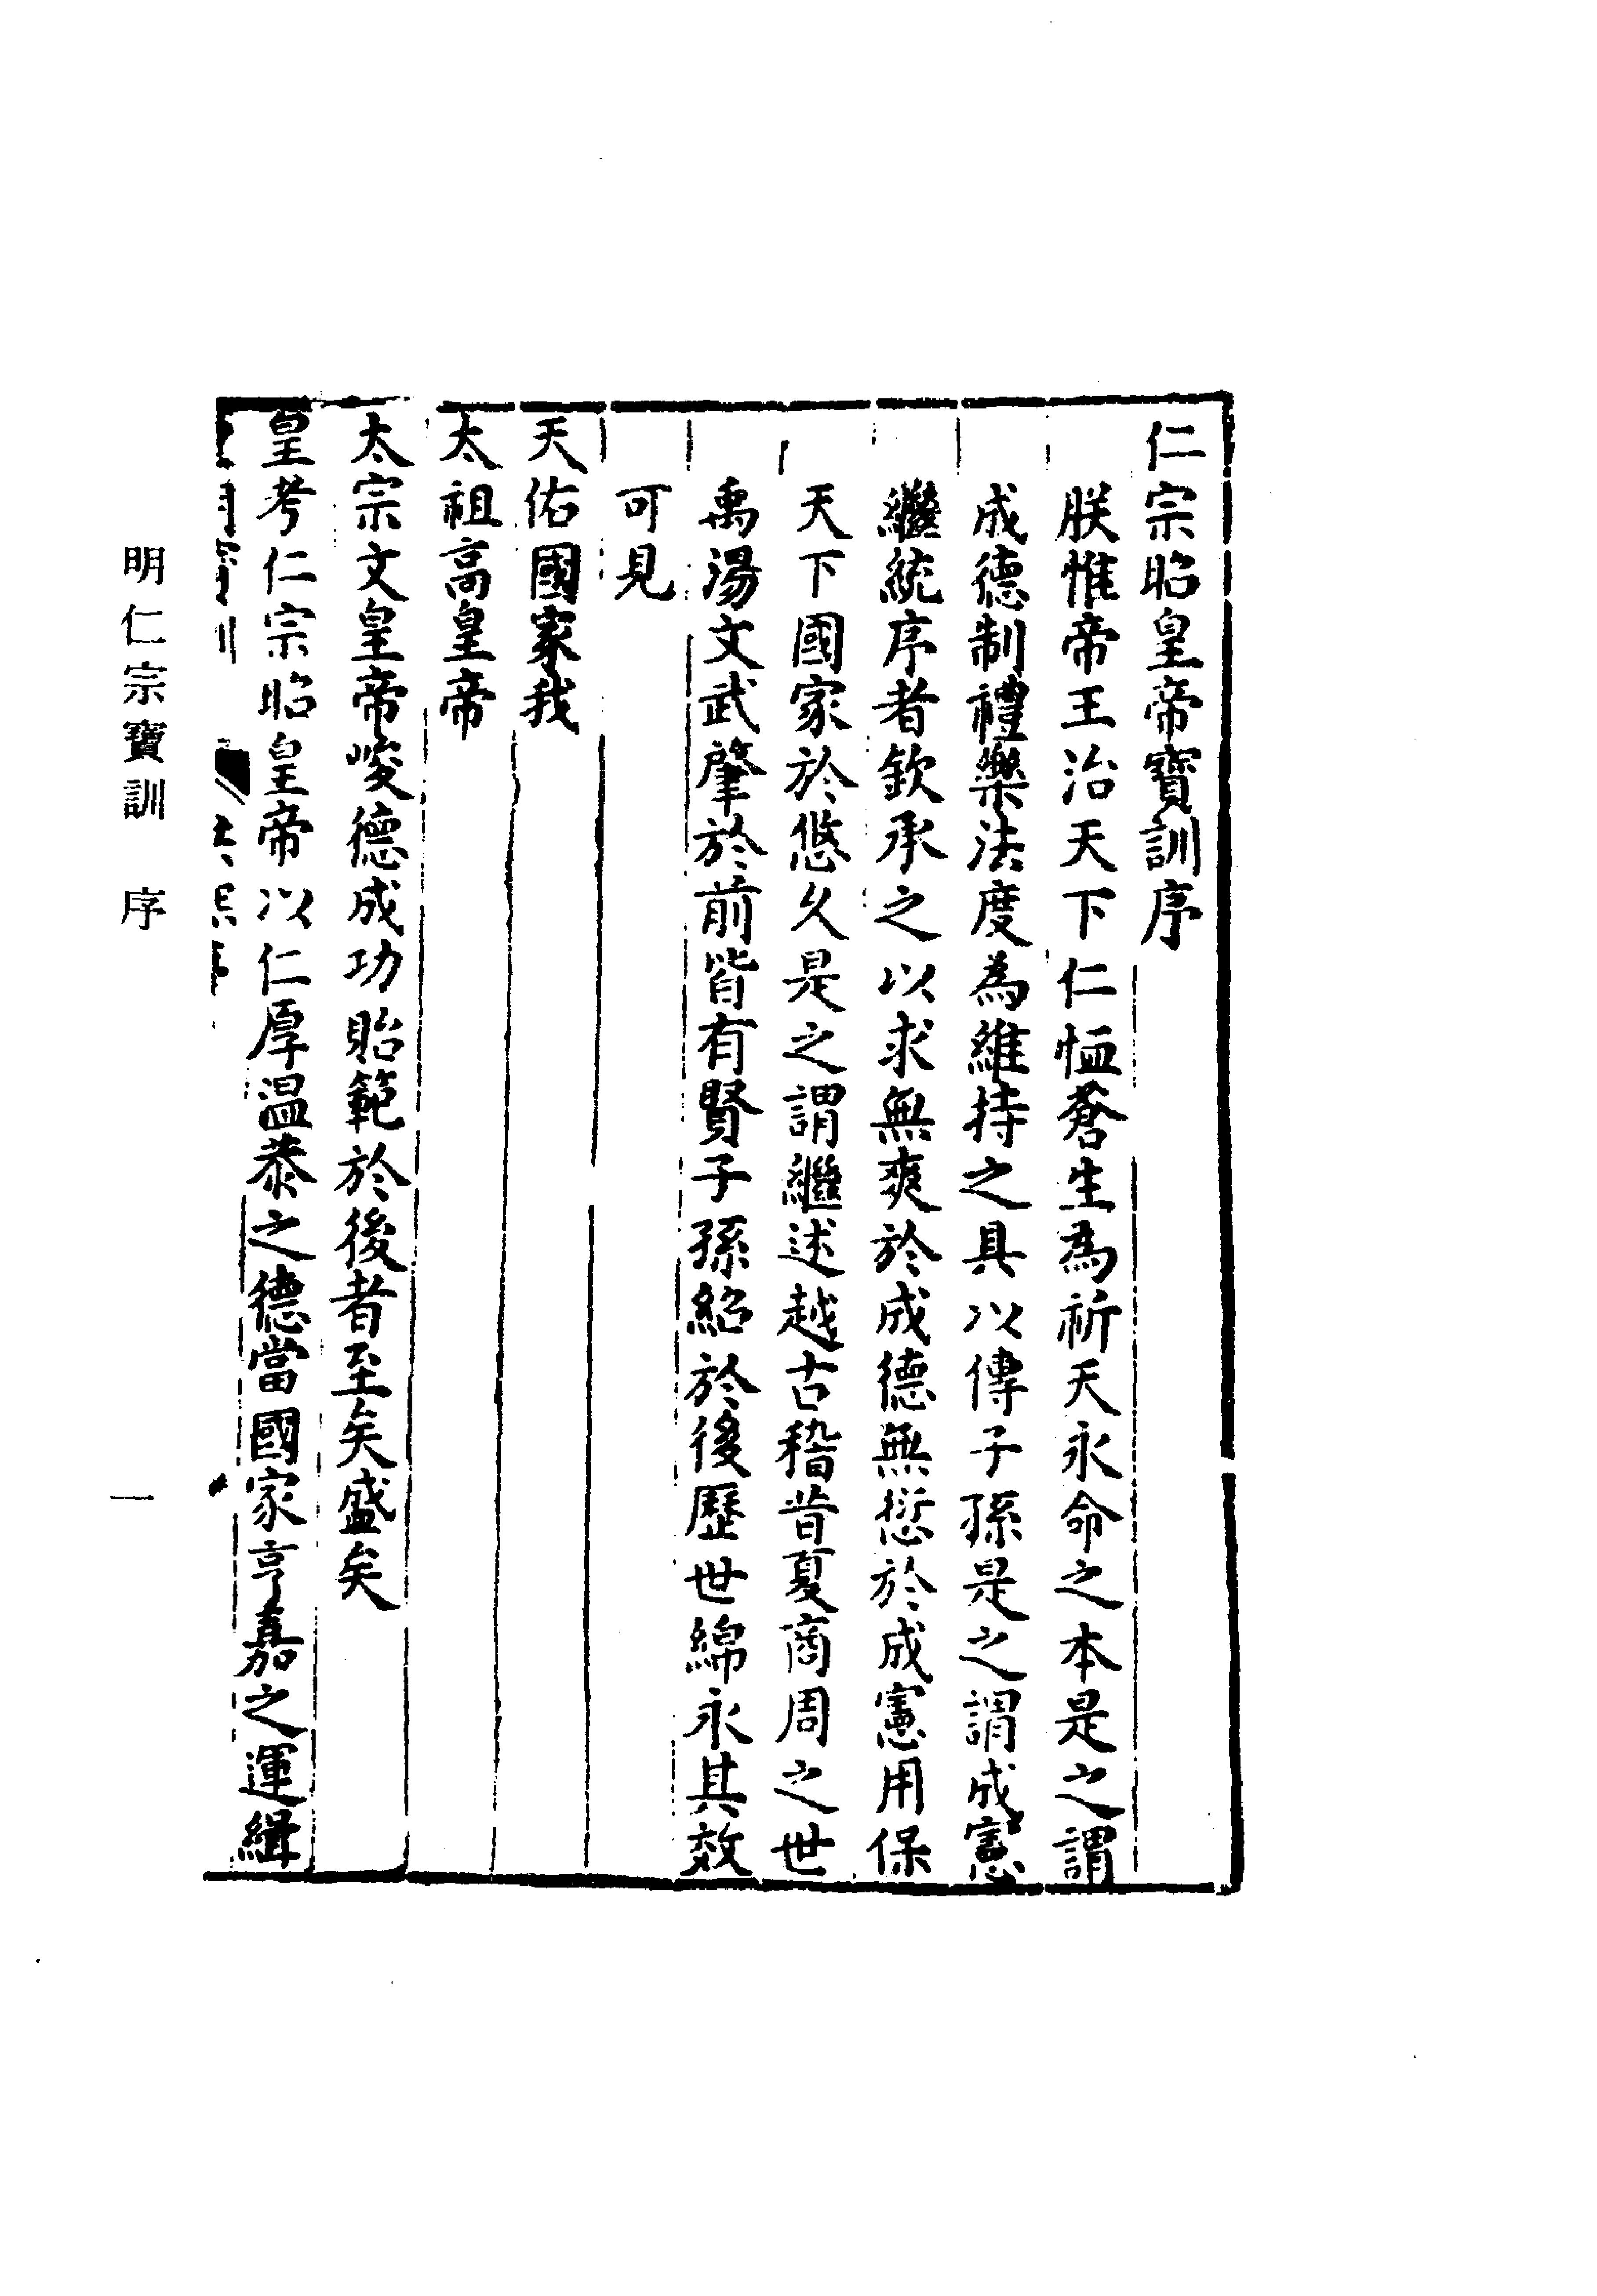 仁宗昭皇帝寶訓序
朕惟帝王治天下仁恤蒼生為祈天永命之本是之謂
成德制禮樂法度為維持之具以傳子孫是之謂成憲
繼統序者欽承之以求無爽於成德無愆於成憲用保
天下國家於悠久是之謂繼述越古稽昔夏商周之世
禹湯文武肇於前皆有賢子孫紹於後歷世綿永其效
可見
天佑國家我
太祖高皇帝
太宗文皇帝峻德成功貽範於後者至矣盛矣
皇考仁宗昭皇帝以仁厚温恭之德當國家亨嘉之運緝
明仁宗寶訓 序
一